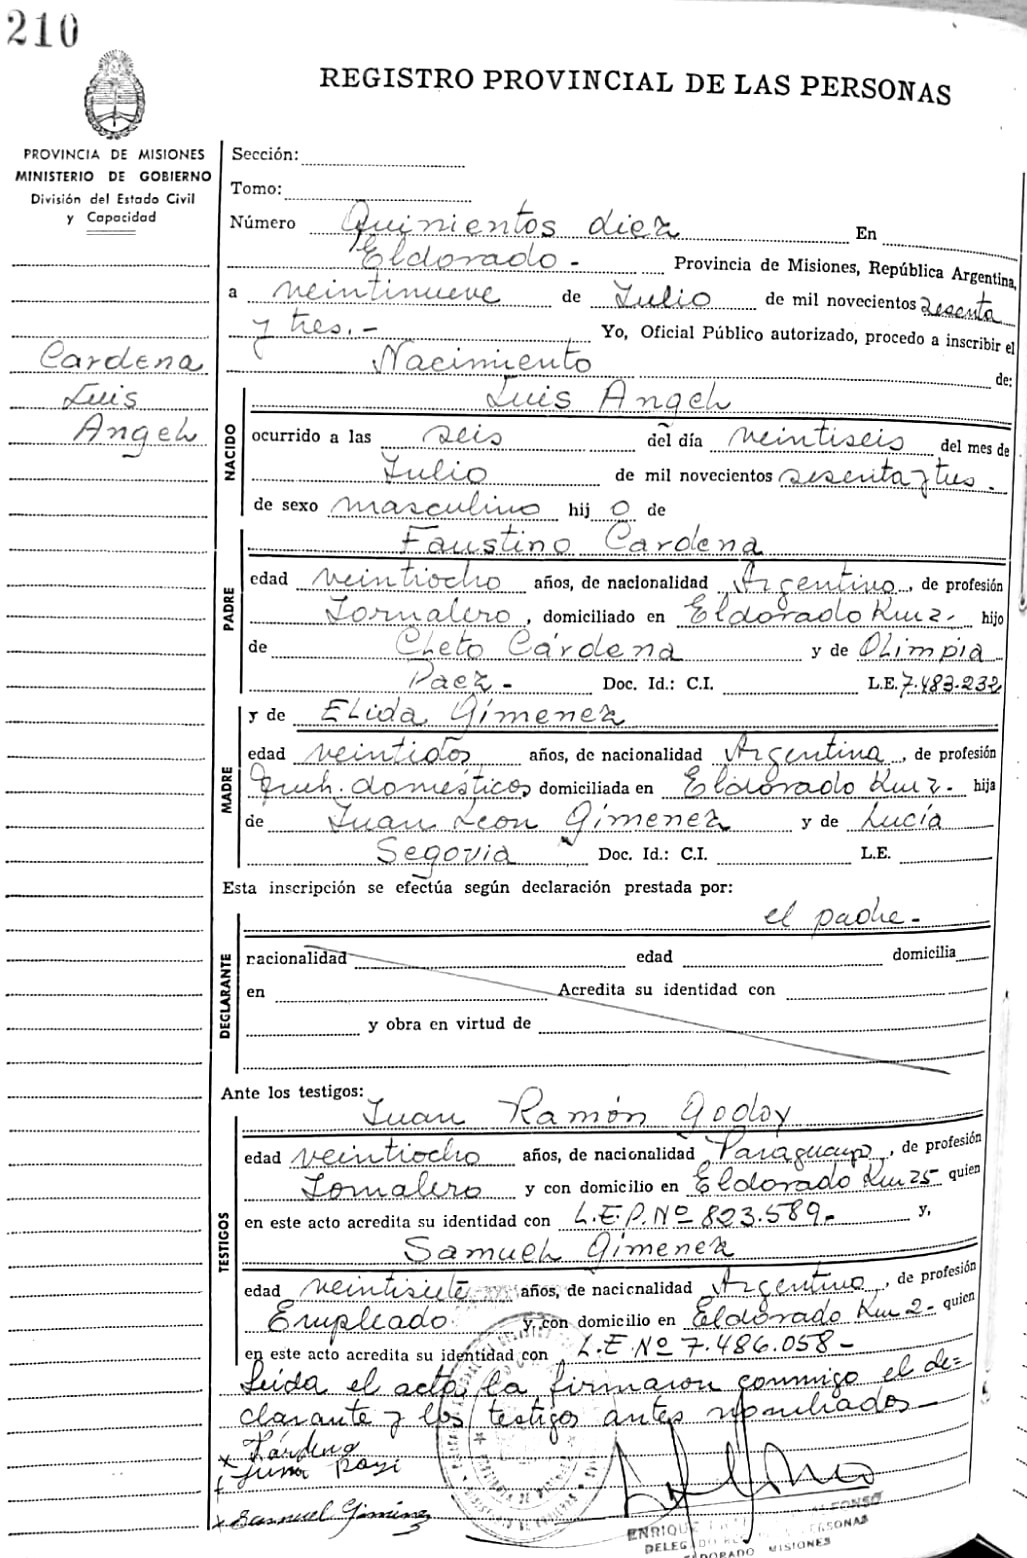 210
REGISTRO PROVINCIAL DE LAS PERSONAS
PROVINCIA DE MISIONES
MINISTERIO DE GOBIERNO
División del Estado Civil
y Capacidad
Cardena
Luis
Angel
Sección:
Tomo:
Número Quinientos diez En
Eldorado - Provincia de Misiones, República Argentina,
a veintinueve de Julio de mil novecientos sesenta
y tres.- Yo, Oficial Público autorizado, procedo a inscribir el
Nacimiento de:
NACIDO
Luis Angel
ocurrido a las seis del día veintiseis del mes de
Julio de mil novecientos sesenta y tres -
de sexo masculino hij o de
PADRE
Faustino Cardena
edad veintiocho años, de nacionalidad Argentino, de profesión
Jornalero, domiciliado en Eldorado Km 2- hijo
de Cleto Cárdena y de Olimpia
Paez - Doc. Id.: C.I. L.E. 7.483.232
MADRE
y de Elida Gimenez
edad veintidos años, de nacionalidad Argentina, de profesión
Queh. domésticos domiciliada en Eldorado Km 2- hija
de Juan Leon Gimenez y de Lucía
Segovia Doc. Id.: C.I. L.E.
Esta inscripción se efectúa según declaración prestada por:
el padre -
DECLARANTE
racionalidad edad domicilia
en Acredita su identidad con
y obra en virtud de
Ante los testigos:
TESTIGOS
Juan Ramón Godoy
edad veintiocho años, de nacionalidad Paraguayo, de profesión
Jornalero y con domicilio en Eldorado Km 25- quien
en este acto acredita su identidad con L.E.P. Nº 823.589- y,
Samuel Gimenez
edad veintisiete años, de nacionalidad Argentino, de profesión
Empleado y, con domicilio en Eldorado Km 2- quien
en este acto acredita su identidad con L.E Nº 7.486.058-
Leida el acta, la firmaron conmigo el de=
clarante y los testigos antes nombrados-
x Cárdena
x Juan
x Samuel Giménez
ENRIQUE ALFONSO
DELEGADO PERSONAS
ELDORADO MISIONES